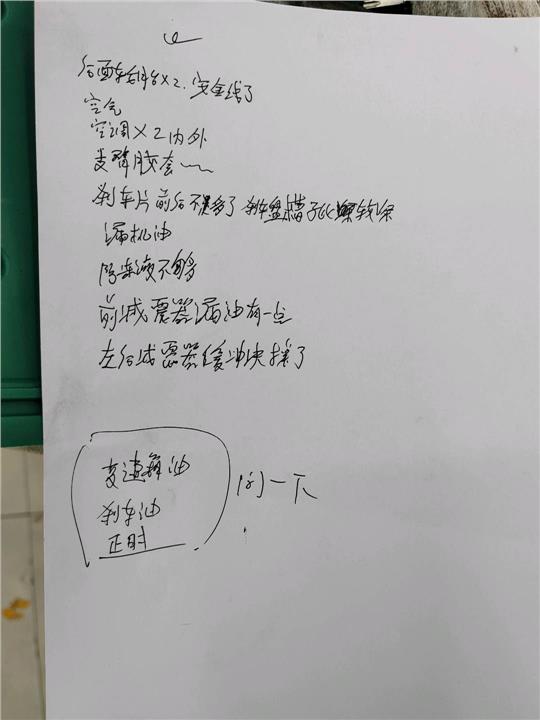 后面轮胎×2.安全线了
空气
空调×2内外
支臂胶套
刹车片前后不多了 刹车盘槽子比较深
漏机油
防冻液不够
前减震器漏油有一点
左后减震器缓冲块掉了
变速箱油
刹车油
正时
问一下